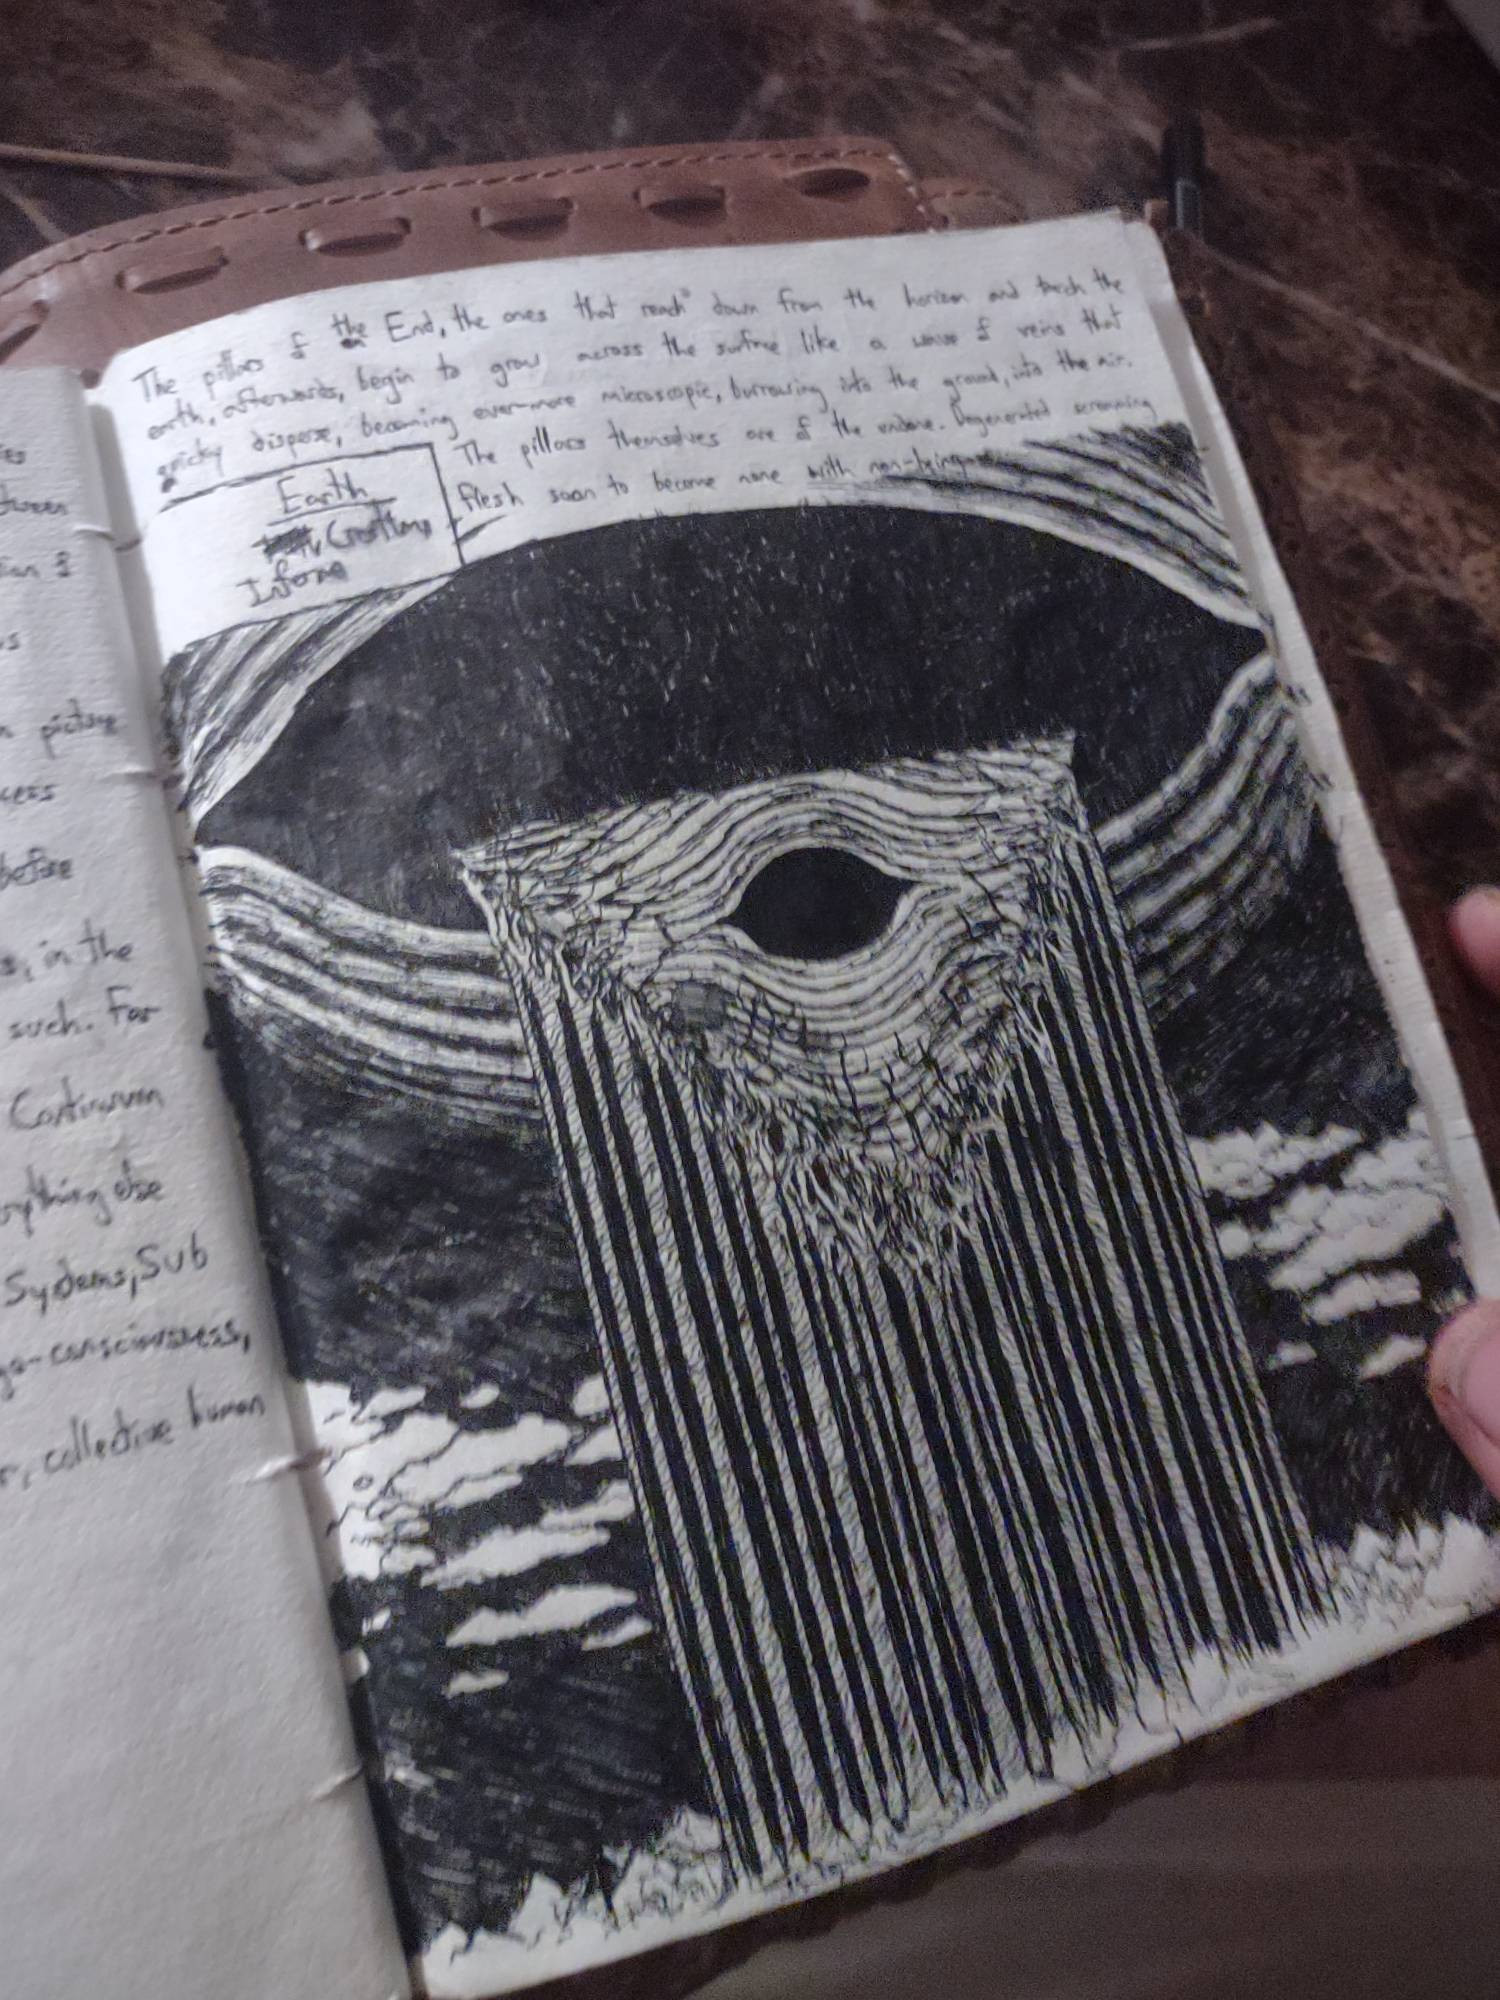 ies
tween
ion of
us
n picture
cess
before
s, in the
such. For
Continuum
everything else
Systems, Sub
go-consciousness,
r, collective human
The pillars of the End, the ones that reach down from the horizon and torch the
earth, afterwards, begin to grow across the surface like a wave of veins that
quicky disperse, becoming evermore microscopic, burrowing into the ground, into the air.
The pillars themselves are of the undone. Degenerated screaming
flesh soon to become none with non-being
Earth